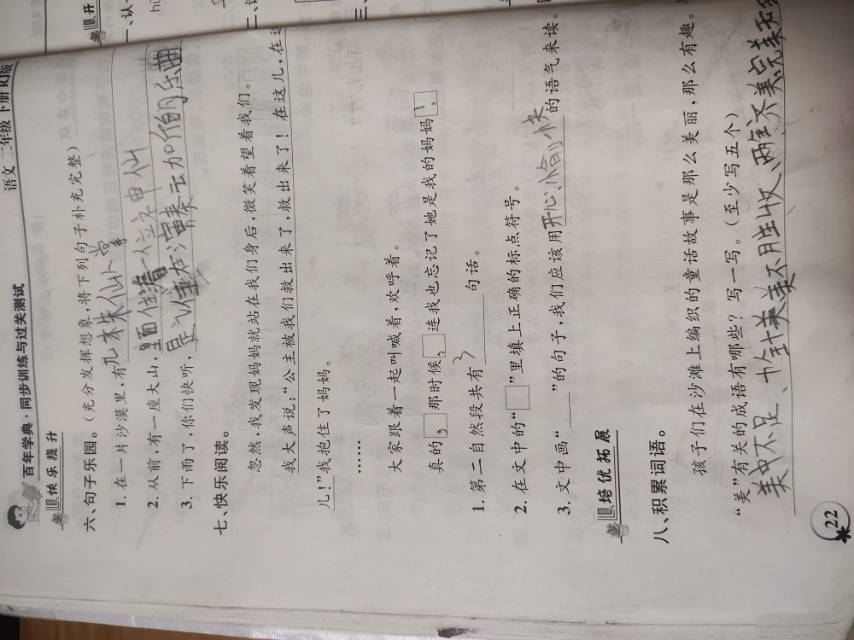 语文 二年级 下册 RJ版
百年学典·同步训练与过关测试
快乐提升
六、句子乐园。(充分发挥想象,将下列句子补充完整)
1. 在一片沙漠里,有几株仙人掌
2. 从前,有一座大山,里面住着一位神仙
3. 下雨了,你们快听,是谁在演奏云加们的乐曲
七、快乐阅读。
忽然,我发现妈妈就站在我们身后,微笑着望着我们。
我大声说:“公主被我们救出来了,救出来了!在这儿,在这
儿!”我抱住了妈妈。
……
大家跟着一起叫喊着,欢呼着。
真的,那时候,连我也忘记了她是我的妈妈!
1. 第二自然段共有 3 句话。
2. 在文中的“□”里填上正确的标点符号。
3. 文中画“____”的句子,我们应该用开心、愉快的语气来读。
培优拓展
八、积累词语。
孩子们在沙滩上编织的童话故事是那么美丽,那么有趣。
“美”有关的成语有哪些?写一写。(至少写五个)
美中不足、恰到 美不胜收、两全齐美完美
22